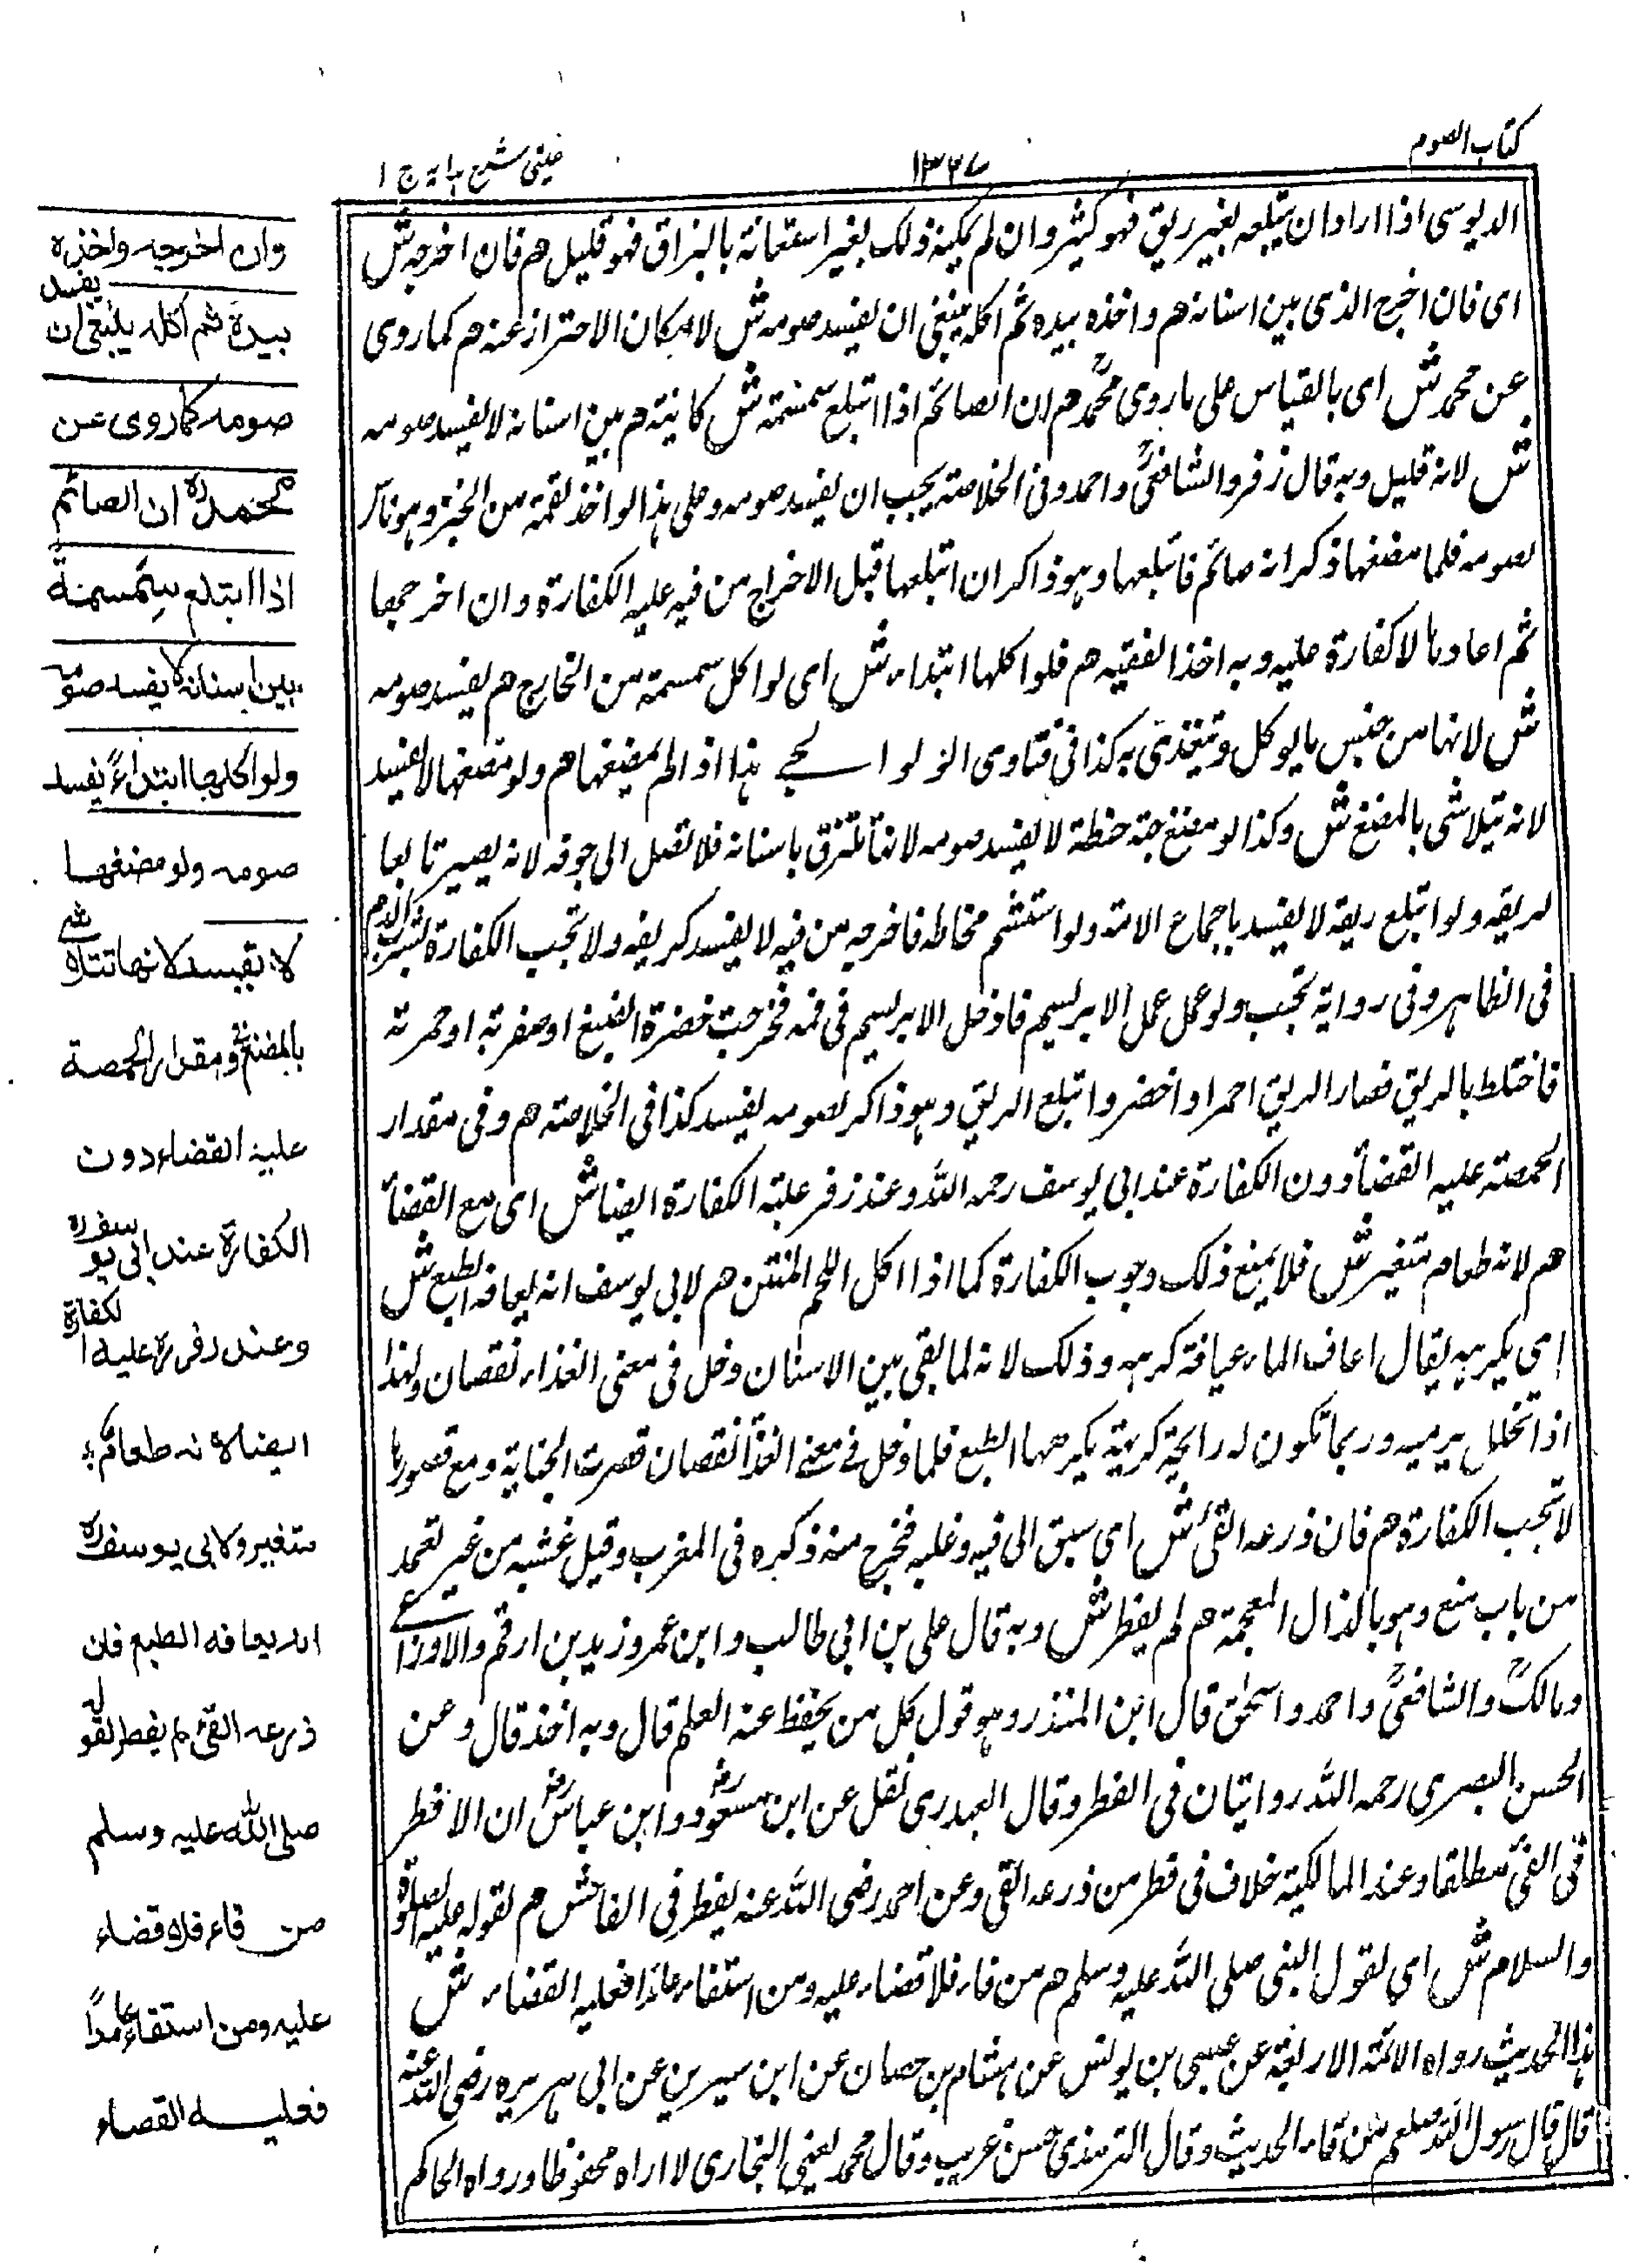 كتاب الصوم
١٣٢٧
عينى شرح هدايه ج ١
الدبوسى اذا اراد ان يبتلعه بغير ريق فهو كثير وان لم يمكنه ذلك بغير استعانة بالبزاق فهو قليل هم فان اخرجه ش
اى فان اخرج الذى بين اسنانه هم واخذه بيده ثم اكله ينبغى ان يفسد صومه ش لامكان الاحتراز عنه هم كما روى
عن محمد ش اى بالقياس على ما روى محمدؒ هم ان الصائم اذا ابتلع سمسمة ش كائنة هم بين اسنانه لا يفسد صومه
ش لانه قليل وبه قال زفر والشافعىؒ واحمد وفى الخلاصة يجب ان يفسد صومه وعلى هذا لو اخذ لقمة من الخبز وهو ناس
لصومه فلما مضغها ذكر انه صائم فابتلعها وهو ذاكر ان ابتلعها قبل الاخراج من فيه عليه الكفارة وان اخرجها
ثم اعادها لا كفارة عليه وبه اخذ الفقيه هم فلو اكلها ابتداء ش اى لو اكل سمسمة من الخارج هم يفسد صومه
ش لانها من جنس ما يوكل ويتغذى به كذا فى فتاوى الولوالجى هذا اذا لم يمضغها هم ولو مضغها لا يفسد
لانه يتلاشى بالمضغ ش وكذا لو مضغ حبة حنطة لا يفسد صومه لانها تلتزق باسنانه فلا تصل الى جوفه لانه يصير تابعا
لريقه ولو ابتلع ريقه لا يفسد باجماع الامة ولو استنشم مخاطه فاخرجه من فيه لا يفسد كريقه ولا تجب الكفارة بشرب الدم
فى الظاهر وفى رواية تجب ولو عمل عمل الابريسم فادخل الابريسم فى فمه فخرجت خضرة الصبغ او صفرته او حمرته
فاختلط بالريق فصار الريق احمر او اخضر وابتلع الريق وهو ذاكر لصومه يفسد كذا فى الخلاصة هم وفى مقدار
الحمصة عليه القضاء دون الكفارة عند ابى يوسف رحمه الله وعند زفر عليه الكفارة ايضا ش اى مع القضاء
هم لانه طعام متغير ش فلا يمنع ذلك وجوب الكفارة كما اذا اكل اللحم المنتن هم لابى يوسف انه يعافه الطبع ش
اى يكرهه يقال اعاف الماء عيافة كرهه وذلك لانه لما بقى بين الاسنان دخل فى معنى الغذاء نقصان ولهذا
اذا تخلل يرميه وربما تكون له رائحة كريهة يكرهها الطبع فلما دخل فى معنى الغذا نقصان قصرت الجناية ومع قصورها
لا تجب الكفارة هم فان ذرعه القئ ش اى سبق الى فيه وغلبه فخرج منه ذكره فى المغرب وقيل غشيه من غير تعمد
من باب منع وهو بالذال المعجمة هم لم يفطر ش وبه قال على بن ابى طالب وابن عمر وزيد بن ارقم والاوزاعى
ومالكؒ والشافعىؒ واحمد واسحٰق قال ابن المنذر وهو قول كل من يحفظ عنه العلم قال وبه اخذ قال وعن
الحسن البصرى رحمه الله روايتان فى الفطر وقال العبدرى نقل عن ابن مسعودؓ وابن عباسؓ ان لا فطر
فى القئ مطلقا وعند المالكية خلاف فى فطر من ذرعه القى وعن احمد رضى الله عنه يفطر فى الفاحش هم لقوله عليه الصلوة
والسلام ش اى لقول النبى صلى الله عليه وسلم هم من قاء فلا قضاء عليه ومن استقاء عامدا فعليه القضاء ش
هذا الحديث رواه الائمة الاربعة عن عيسى بن يونس عن هشام بن حصان عن ابن سيرين عن ابى هريره رضى الله عنه
قال قال رسول الله صلعم من قاء الحديث وقال الترمذى حسن غريب وقال محمد يعنى البخارى لا اراه محفوظا ورواه الحاكم
وان اخرجه واخذه
بيده ثم اكله ينبغى ان يفسد
صومه كما روى عن
محمدره ان الصائم
اذا ابتلع سمسمة
بين اسنانه لا يفسد صومه
ولو اكلها ابتداءً يفسد
صومه ولو مضغها
لا يفسد لانها تتلاشى
بالمضغ وفى مقدار الحمصة
عليه القضاء دون
الكفارة عند ابى يوسف ره
وعند زفر ره عليه الكفارة
ايضا لانه طعام
متغير ولابى يوسف ره
انه يعافه الطبع فان
ذرعه القئ لم يفطر لقوله
صلى الله عليه وسلم
من قاء فلا قضاء
عليه ومن استقاء عامداً
فعليه القضاء